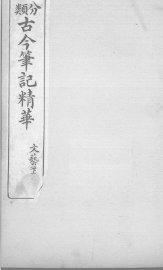 分類
古今筆記精華
文藝